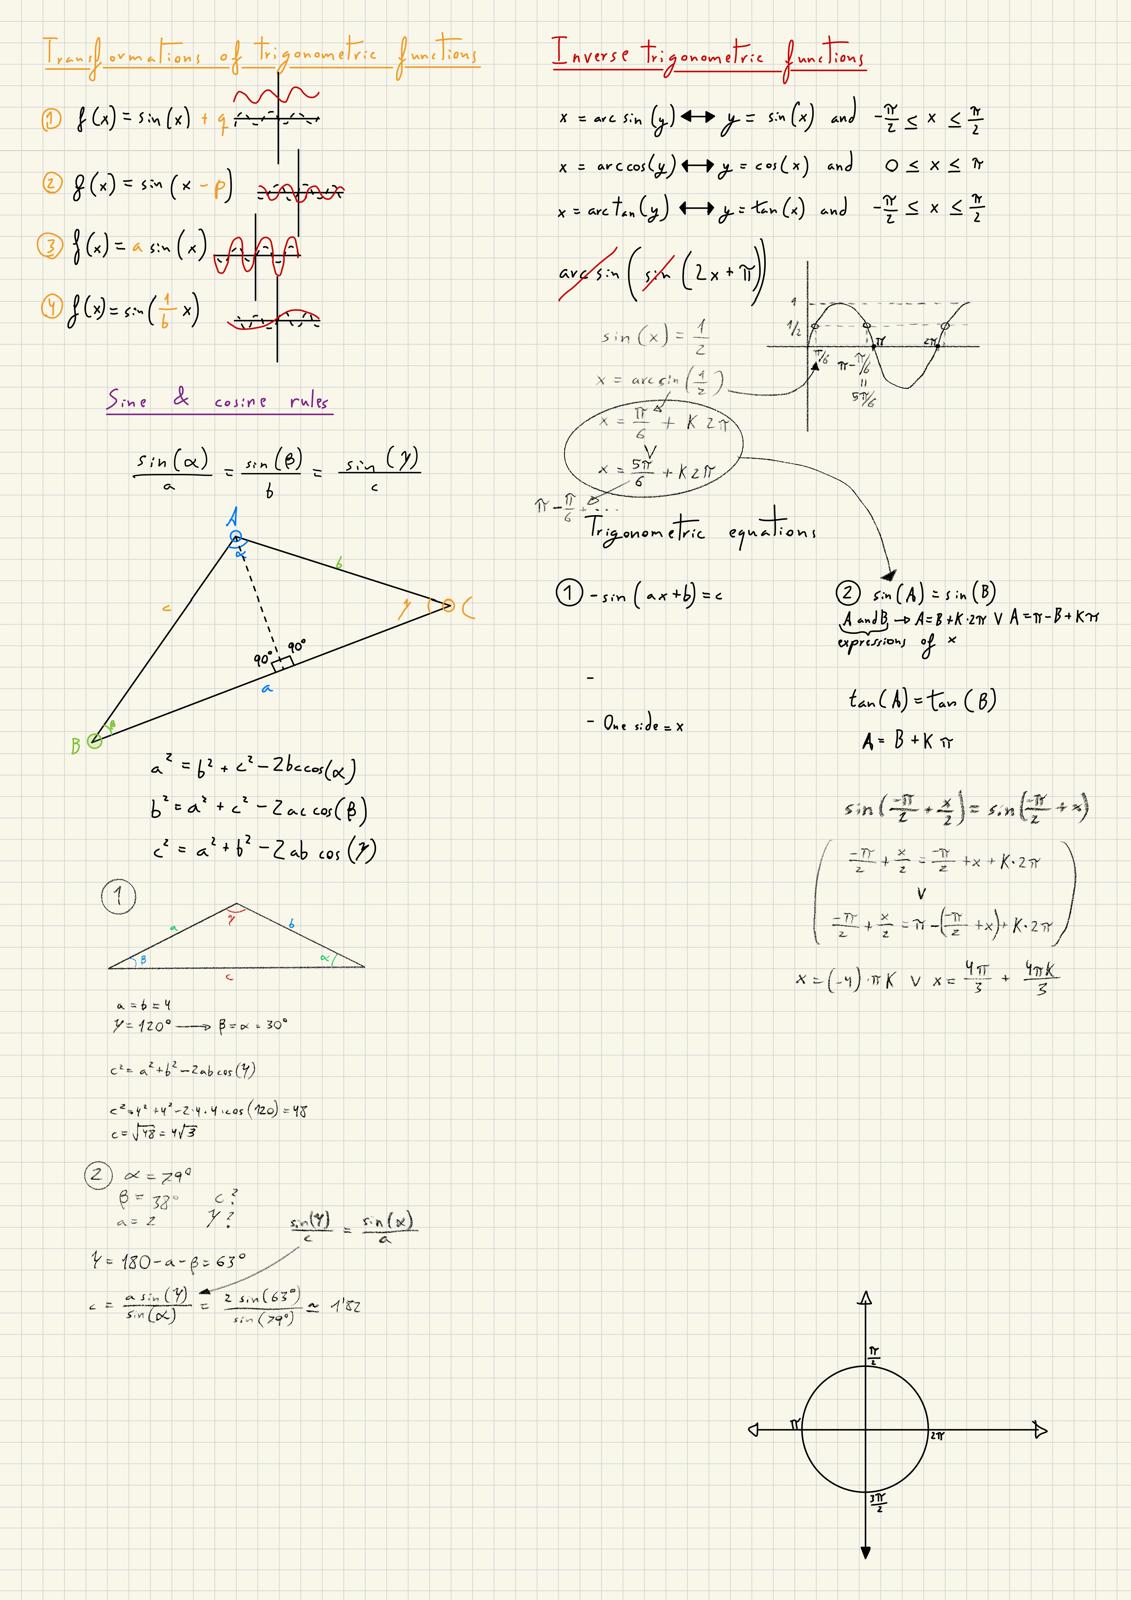 Transformations of trigonometric functions
① f(x) = sin(x) + q
② f(x) = sin(x - p)
③ f(x) = a sin(x)
④ f(x) = sin(1/b x)
Sine & cosine rules
sin(α)/a = sin(β)/b = sin(γ)/c
A
α
b
c
γ C
90° 90°
a
B β
a² = b² + c² - 2bccos(α)
b² = a² + c² - 2ac cos(β)
c² = a² + b² - 2ab cos(γ)
①
a γ b
β α
c
a = b = 4
γ = 120° → β = α = 30°
c² = a² + b² - 2ab cos(γ)
c² = 4² + 4² - 2·4·4·cos(120) = 48
c = √48 = 4√3
② α = 79°
β = 38° c?
a = 2 γ?
sin(γ)/c = sin(α)/a
γ = 180 - a - β = 63°
c = a sin(γ)/sin(α) = 2 sin(63°)/sin(79°) ≃ 1'82
Inverse trigonometric functions
x = arc sin(y) ↔ y = sin(x) and -π/2 ≤ x ≤ π/2
x = arccos(y) ↔ y = cos(x) and 0 ≤ x ≤ π
x = arctan(y) ↔ y = tan(x) and -π/2 ≤ x ≤ π/2
arc sin(sin(2x + π))
sin(x) = 1/2
x = arcsin(1/2)
x = π/6 + K 2π
V
x = 5π/6 + K2π
π - π/6 + ...
1
1/2
π 2π
π/6 π - π/6
=
5π/6
Trigonometric equations
① - sin(ax+b) = c
-
- One side = x
② sin(A) = sin(B)
A and B → A = B + K·2π V A = π - B + Kπ
expressions of x
tan(A) = tan(B)
A = B + K π
sin(-π/2 + x/2) = sin(-π/2 + x)
-π/2 + x/2 = -π/2 + x + K·2π
V
-π/2 + x/2 = π - (-π/2 + x) + K·2π
x = (-4)·πK V x = 4π/3 + 4πK/3
π/2
π 2π
3π/2